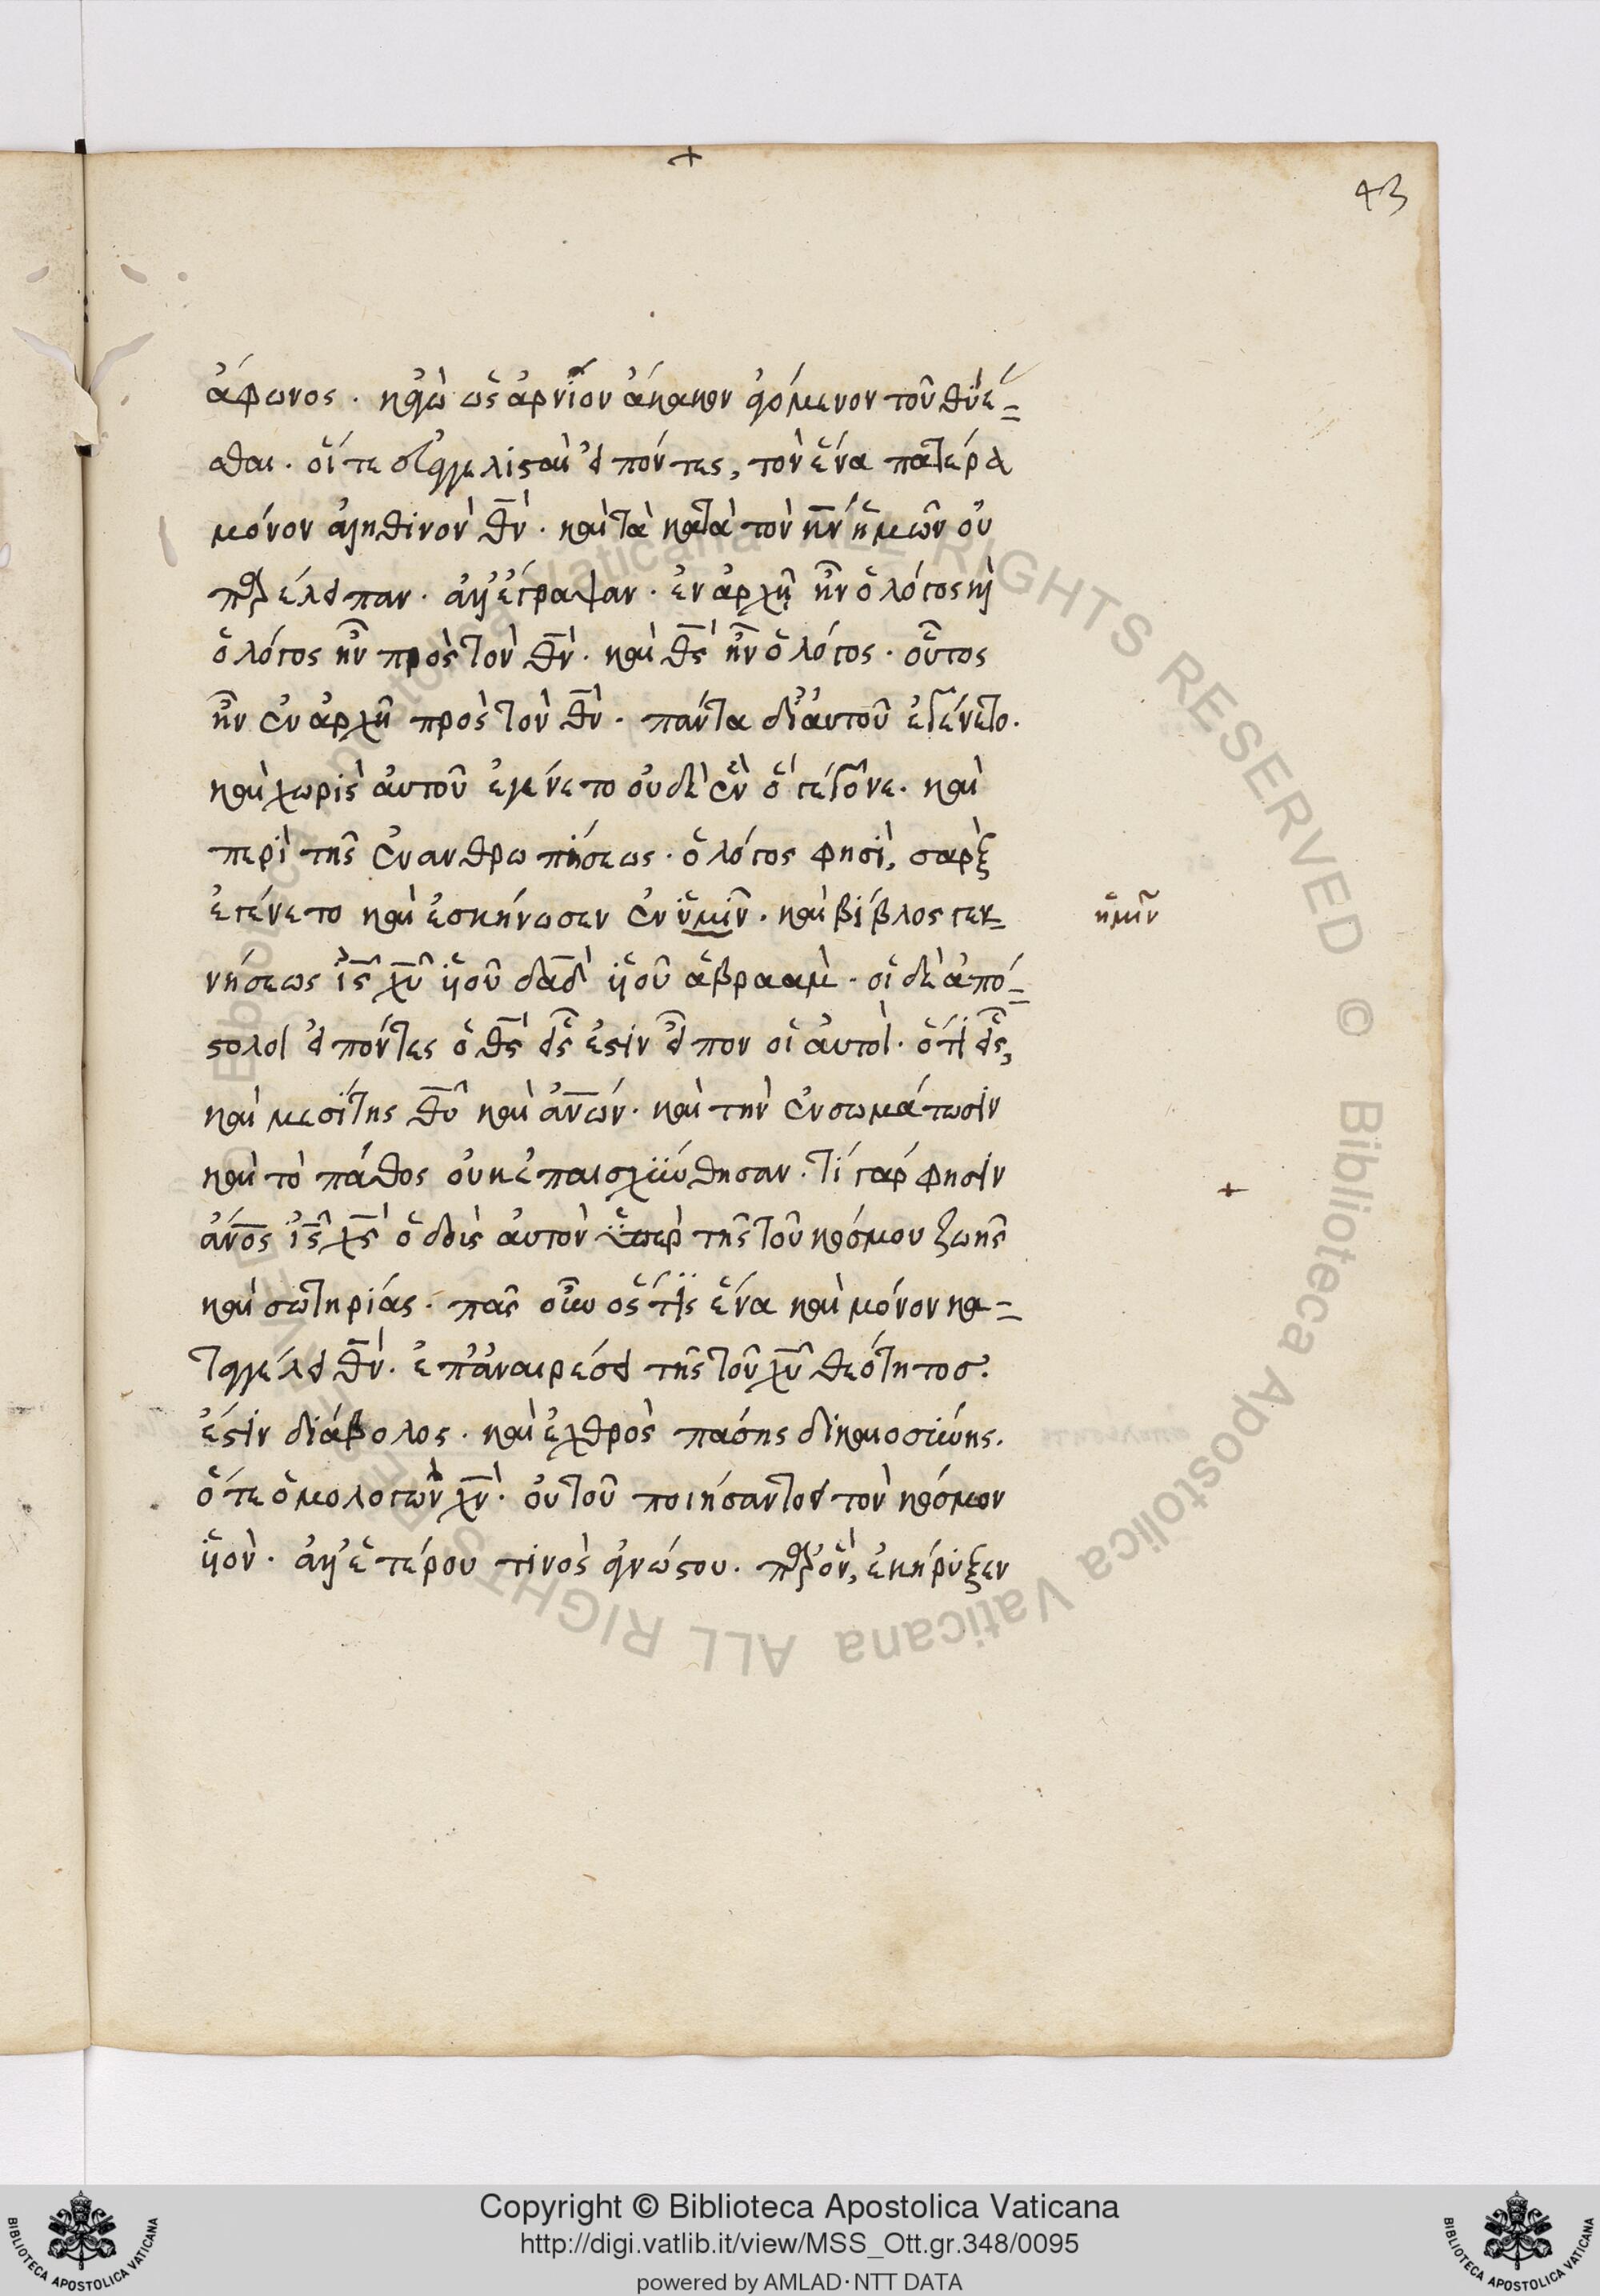 43
ἄφωνος. κἀγὼ ὡς ἀρνίον ἄκακον ἀγόμενον τοῦ θύε=
σθαι. οἵ τε εὐαγγελισταὶ εἰπόντες, τὸν ἕνα πατέρα
μόνον ἀληθινὸν θ̅ν̅. καὶ τὰ κατὰ τὸν κ̅ν̅ ἡμῶν οὐ
παρέλειπαν. ἀλλ' ἔγραψαν. ἐν ἀρχῇ ἦν ὁ λόγος καὶ
ὁ λόγος ἦν πρὸς τὸν θ̅ν̅. καὶ θ̅ς̅ ἦν ὁ λόγος. οὗτος
ἦν ἐν ἀρχῇ πρὸς τὸν θ̅ν̅. πάντα δι' αὐτοῦ ἐγένετο.
καὶ χωρὶς αὐτοῦ ἐγένετο οὐδὲ ἓν ὃ γέγονε. καὶ
περὶ τῆς ἐνανθρωπήσεως. ὁ λόγος φησὶ, σὰρξ
ἐγένετο καὶ ἐσκήνωσεν ἐν ὑμῖν. καὶ βίβλος γεν=
ἡμῖν
νήσεως ἰ̅ς̅ χ̅υ̅ ὑιοῦ δ̅α̅δ̅ ὑιοῦ ἀβραάμ. οἱ δὲ ἀπό=
στολοι εἰπόντες ὁ θ̅ς̅ εἷς ἐστὶν εἶπον οἱ αὐτοὶ. ὅτι εἷς,
καὶ μεσίτης θ̅υ̅ καὶ ἀ̅ν̅ω̅ν̅. καὶ τὴν ἐνσωμάτωσιν
καὶ τὸ πάθος οὐκ ἐπαισχύνθησαν. τί γάρ φησὶν
ἄ̅ν̅ο̅ς̅ ἰ̅ς̅ χ̅ς̅ ὁ δοὺς αὐτὸν ὑπὲρ τῆς τοῦ κόσμου ζωῆς
καὶ σωτηρίας. πᾶς οὖν ὅς τις ἕνα καὶ μόνον κα=
ταγγέλει θ̅ν̅. ἐπ' ἀναιρέσει τῆς τοῦ χ̅υ̅ θεότητος.
ἐστὶν διάβολος. καὶ ἐχθρὸς πάσης δικαιοσύνης.
ὅ τε ὁμολογῶν χ̅ν̅. οὐ τοῦ ποιήσαντος τὸν κόσμον
ὑιὸν. ἀλλ' ἑτέρου τινὸς ἀγνώστου. παρ' ὃν, ἐκήρυξεν
Copyright © Biblioteca Apostolica Vaticana
http://digi.vatlib.it/view/MSS_Ott.gr.348/0095
powered by AMLAD·NTT DATA